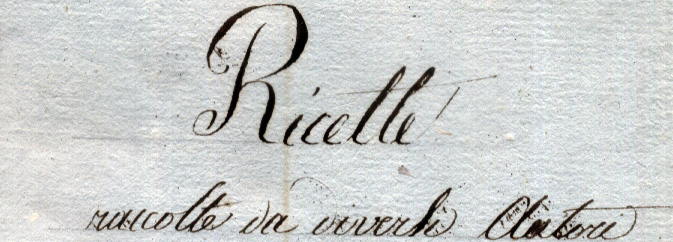 Ricette
raccolte da diversi Autori